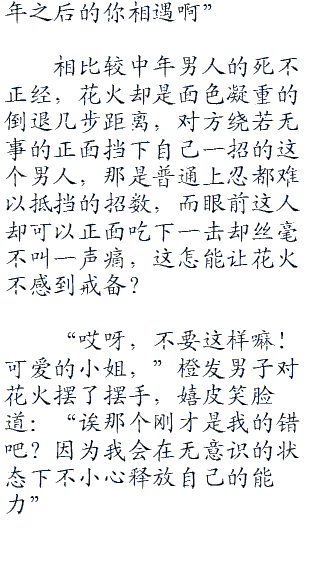 年之后的你相遇啊”
相比较中年男人的死不
正经，花火却是面色凝重的
倒退几步距离，对方绕若无
事的正面挡下自己一招的这
个男人，那是普通上忍都难
以抵挡的招数，而眼前这人
却可以正面吃下一击却丝毫
不叫一声痛，这怎能让花火
不感到戒备？
“哎呀，不要这样嘛！
可爱的小姐，”橙发男子对
花火摆了摆手，嬉皮笑脸
道：“诶那个刚才是我的错
吧？因为我会在无意识的状
态下不小心释放自己的能
力”